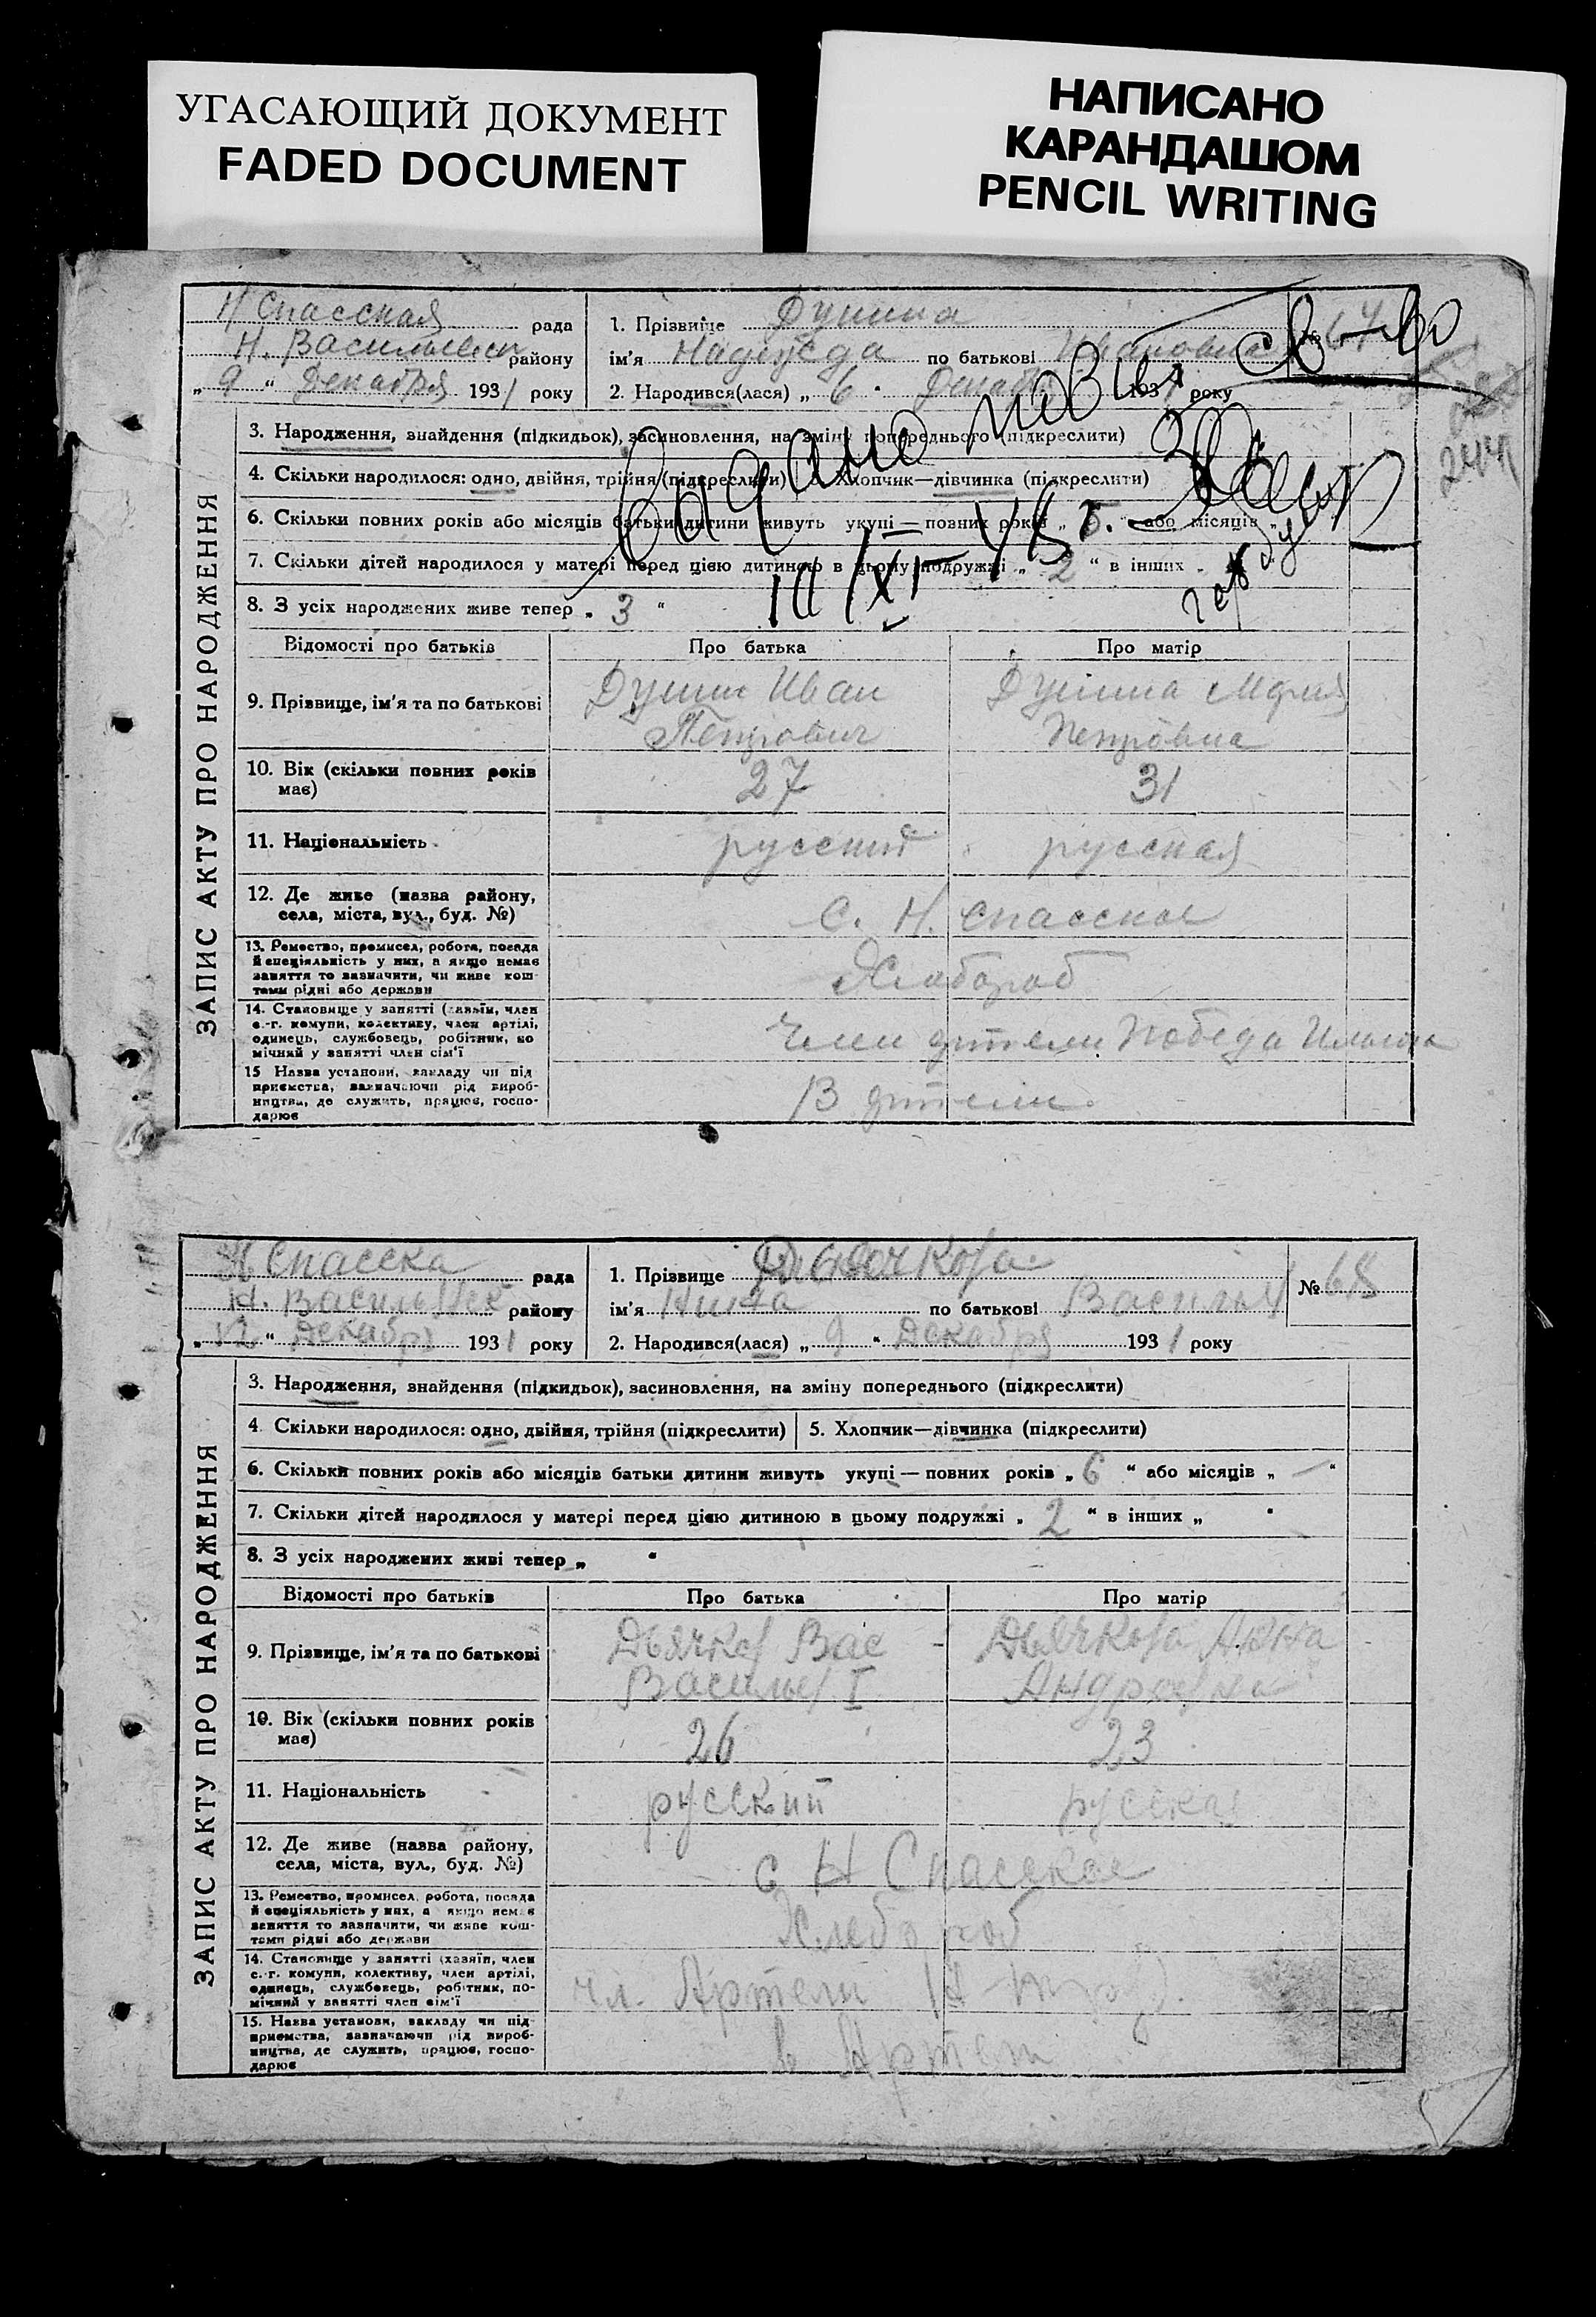 УГАСАЮЩИЙ ДОКУМЕНТ
FADED DOCUMENT
НАПИСАНО
КАРАНДАШОМ
PENCIL WRITING
ЗАПИС АКТУ ПРО НАРОДЖЕННЯ
Н Спасская рада
Н. Васильевск району
„ 9 “ Декабря 1931 року
1. Прізвище Дунина
ім'я Надежда по батькові Ивановна
2. Народився(лася) „ 6 “ Декаб 1931 року
№ 67
Видано повт св-во
10/XI-48 г.
244
3. Народження, знайдення (підкидьок), засиновлення, на зміну попереднього (підкреслити)
4. Скільки народилося: одно, двійня, трійня (підкреслити) Хлопчик—дівчинка (підкреслити)
6. Скільки повних років або місяців батьки дитини живуть укупі — повних років „ 5 “ або місяців „
7. Скільки дітей народилося у матері перед цією дитиною в цьому подружжі „ 2 “ в інших „
8. З усіх народжених живе тепер „ 3 “
Відомості про батьків Про батька Про матір
9. Прізвище, ім'я та по батькові Дунин Иван Дунина Мария
Петрович Петровна
10. Вік (скільки повних років 27 31
має)
11. Національність русский русская
12. Де живе (назва району, С. Н. Спасское
села, міста, вул., буд. №)
13. Ремество, промисел, робота, посада
й спеціяльність у них, а якщо немає Хлебороб
заняття то зазначити, чи живе кош-
тами рідні або держави
14. Становище у занятті (хазяїн, член
с.-г. комуни, колективу, член артілі,
одинець, службовець, робітник, по Член артели Победа
мічний у занятті член сім'ї
15 Назва установи, закладу чи під
приємства, зазначаючи рід вироб- В артели
ництва, де служить, працює, госпо-
дарює
ЗАПИС АКТУ ПРО НАРОДЖЕННЯ
Н Спасска рада
Н. Васильевск району
„ 12 “ Декабря 1931 року
1. Прізвище Дьячкова
ім'я Нина по батькові Василь
2. Народився(лася) „ 9 “ Декабря 1931 року
№ 68
3. Народження, знайдення (підкидьок), засиновлення, на зміну попереднього (підкреслити)
4 Скільки народилося: одно, двійня, трійня (підкреслити) 5. Хлопчик—дівчинка (підкреслити)
6. Скільки повних років або місяців батьки дитини живуть укупі — повних років „ 6 “ або місяців „ — “
7. Скільки дітей народилося у матері перед цією дитиною в цьому подружжі „ 2 “ в інших „ “
8. З усіх народжених живі тепер „ “
Відомості про батьків Про батька Про матір
9. Прізвище, ім'я та по батькові Дьячков Вас Дьячкова Анна
Васильев I Андреевна
10. Вік (скільки повних років 26 23
має)
11. Національність русский русская
12. Де живе (назва району, с Н Спасское
села, міста, вул., буд. №)
13. Ремество, промисел, робота, посада
й спеціяльність у них, а якщо немає Хлебороб
заняття то зазначити, чи живе кош-
тами рідні або держави
14. Становище у занятті (хазяїн, член
с.-г. комуни, колективу, член артілі, чл. Артели
одинець, службовець, робітник, по-
мічний у занятті член сім'ї
15. Назва установи, закладу чи під-
приємства, зазначаючи рід вироб-
ництва, де служить, працює, госпо- в Артели
дарює